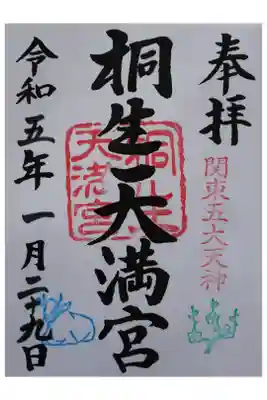 奉拝
関東五大天神
桐生天満宮
桐生
天满宮
令和五年一月二十九日